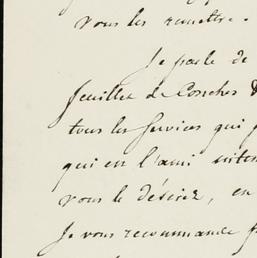 vous les remettre.
Je parle de
feuillet de Conches
tous les services qui p
qui en l'ami intim
vous le désirez, en
Je vous recommande